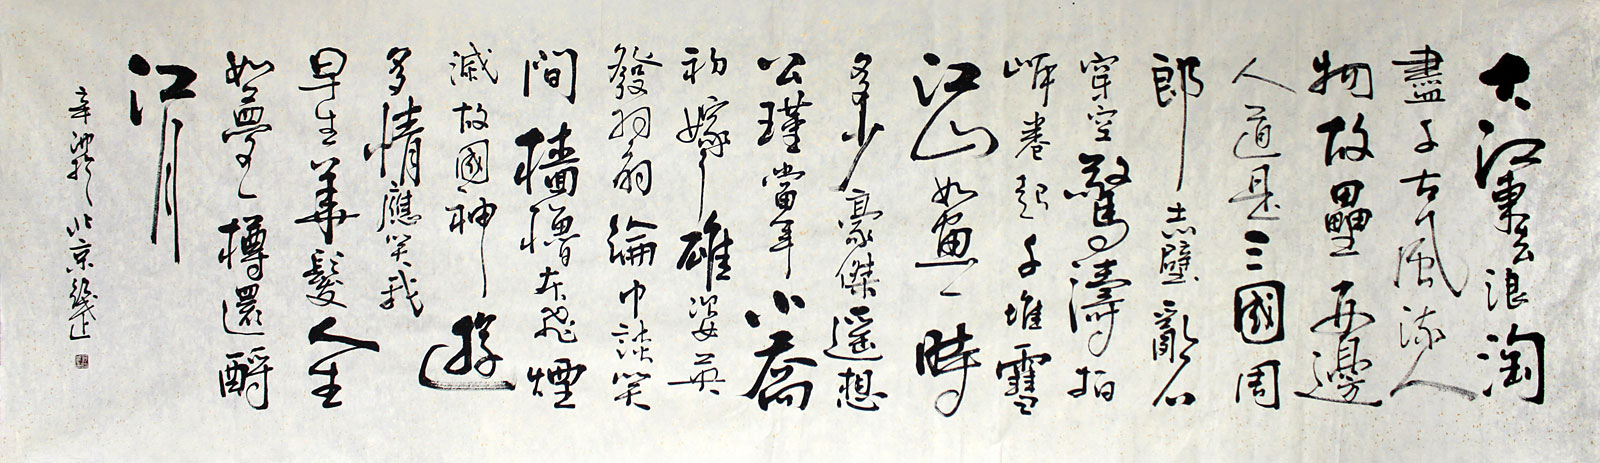 大江東去浪淘
盡千古風流人
物故壘西邊
人道是三國周
郎赤壁亂石
穿空驚濤拍
岸卷起千堆雪
江山如畫一時
多少豪傑遥想
公瑾當年小喬
初嫁了雄姿英
發羽扇綸巾談笑
間檣櫓灰飛煙
滅故國神遊
多情應笑我
早生華髮人生
如夢一樽還酹
江月
辛 北京